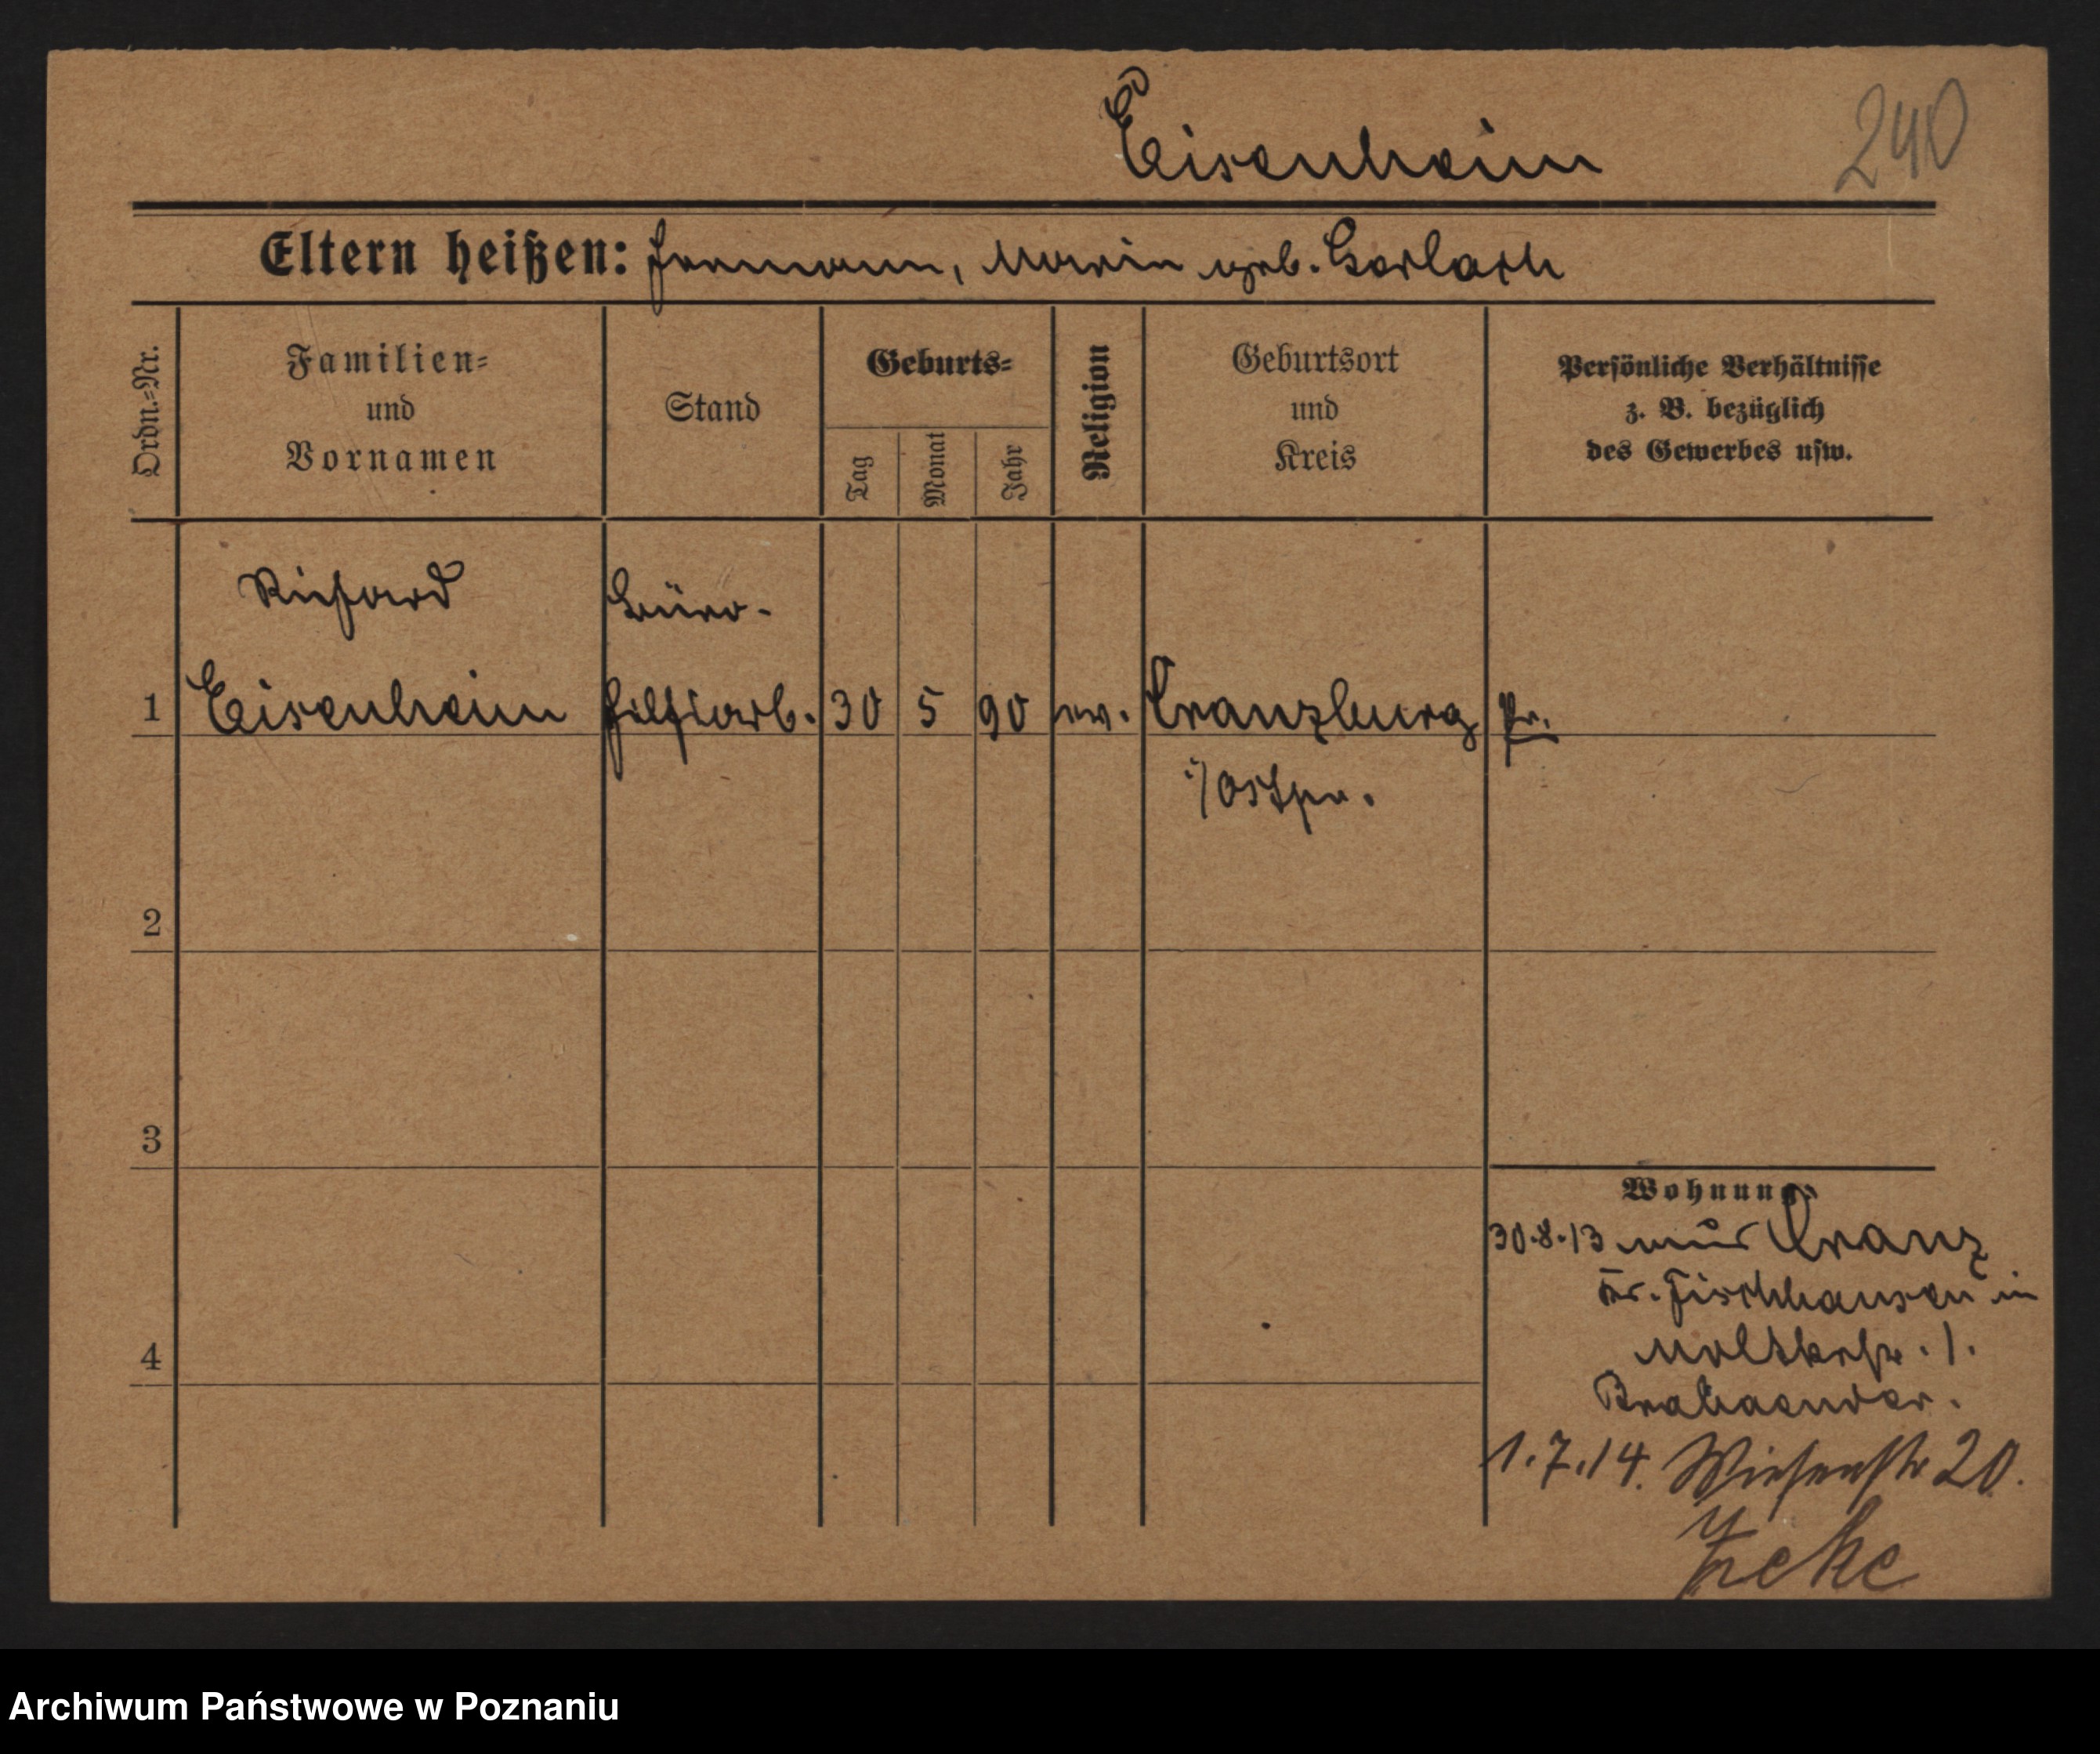 Eisenheim
240
Eltern heißen: Hermann, Marie geb. Gerlach
Ordn.-Nr.
Familien- und Vornamen
Stand
Geburts-
Tag
Monat
Jahr
Religion
Geburtsort und Kreis
Persönliche Verhältnisse
z. B. bezüglich
des Gewerbes usw.
Richard
Büro-
1 Eisenheim hilfsarb. 30 5 90 ev. Kranzburg Pr.
i/Ostpr.
2
3
4
Wohnung
30.8.13 aus Cranz
Kr. Fischhausen in
Moltkestr. 1.
1.7.14. Wiesenstr 20.